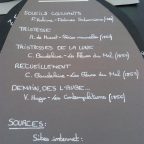 SOLEILS COUCHANTS
P. Verlaine - Poèmes Saturniens (1866)
TRISTESSE
A. de Musset - Poésies nouvelles (1850)
TRISTESSES DE LA LUNE
C. Baudelaire - Les Fleurs du Mal (1857)
RECUEILLEMENT
C. Baudelaire - Les Fleurs du Mal
DEMAIN, DES L'AUBE...
V. Hugo - Les Contemplations
SOURCES:
Sites internet: